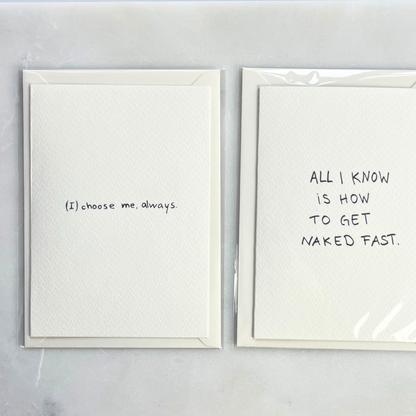 (I) choose me, always.
ALL I KNOW
iS HOW
TO GET
NAKED FAST.